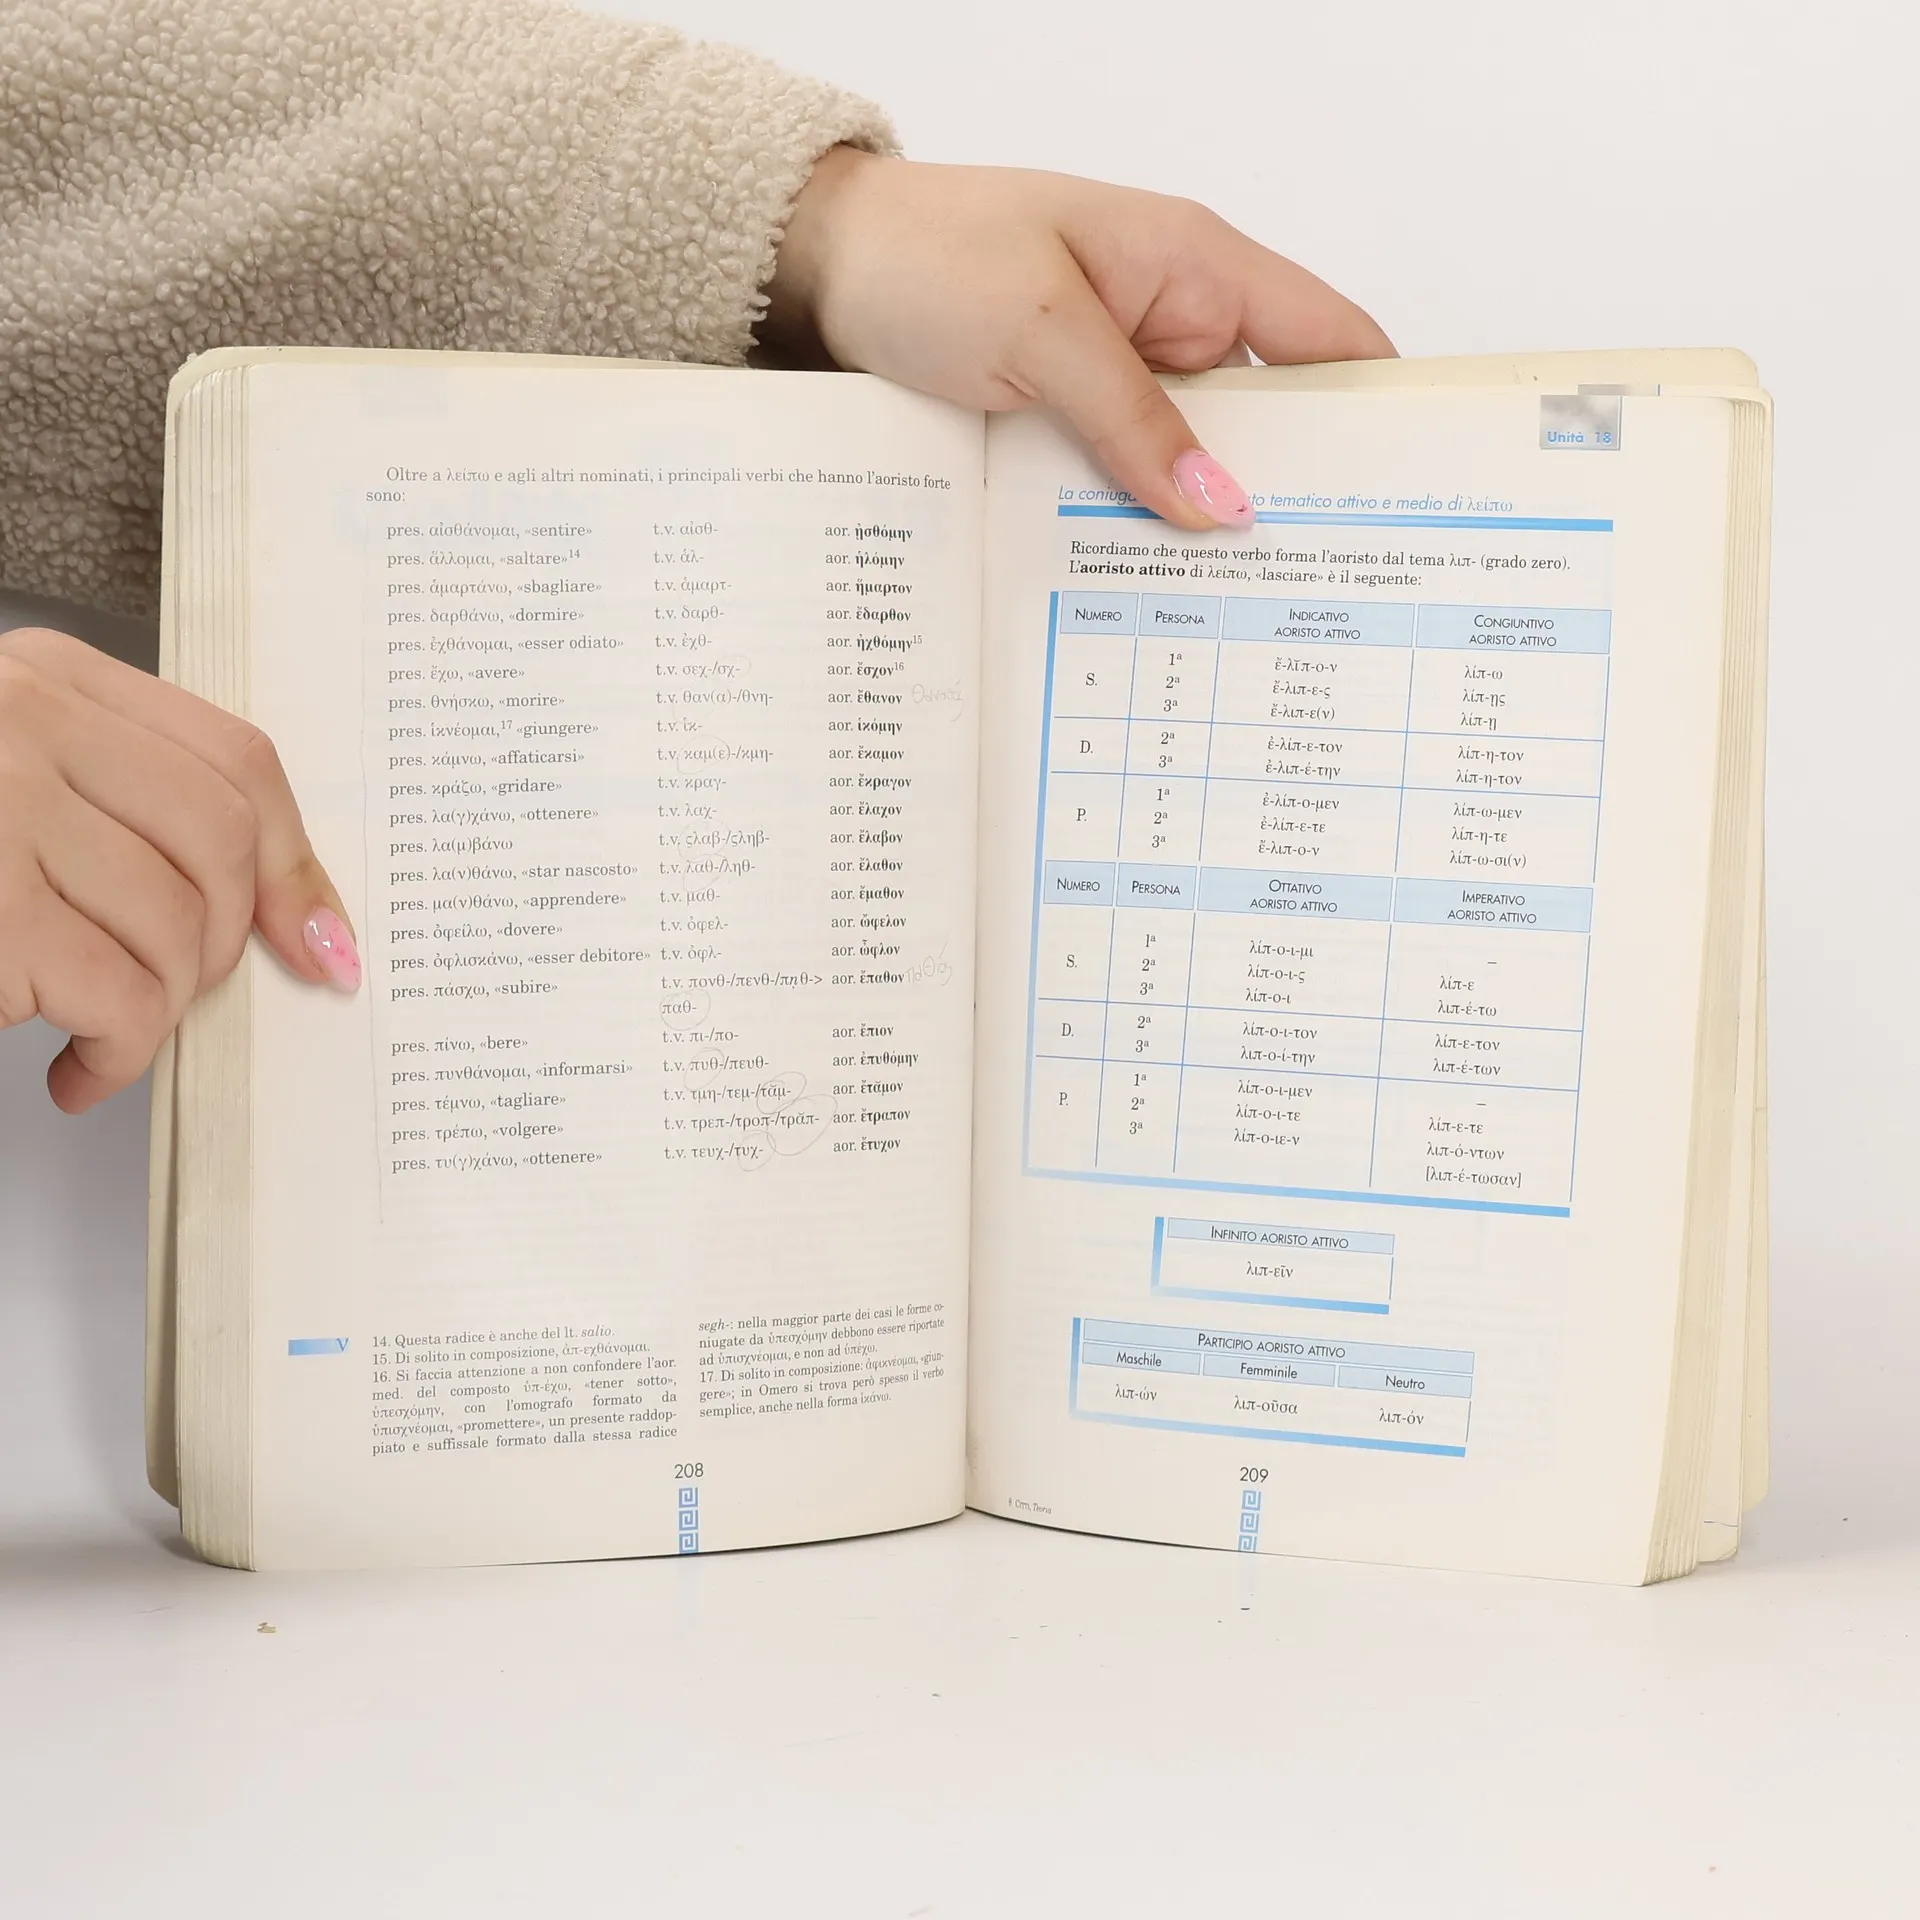 Oltre a λείπω e agli altri nominati, i principali verbi che hanno l'aoristo forte
sono:
pres. αἰσθάνομαι, «sentire» t.v. αἰσθ- aor. ᾐσθόμην
pres. ἅλλομαι, «saltare»14 t.v. ἁλ- aor. ἡλόμην
pres. ἁμαρτάνω, «sbagliare» t.v. ἁμαρτ- aor. ἥμαρτον
pres. δαρθάνω, «dormire» t.v. δαρθ- aor. ἔδαρθον
pres. ἐχθάνομαι, «esser odiato» t.v. ἐχθ- aor. ἠχθόμην15
pres. ἔχω, «avere» t.v. σεχ-/σχ- aor. ἔσχον16
pres. θνήσκω, «morire» t.v. θαν(α)-/θνη- aor. ἔθανον
pres. ἱκνέομαι,17 «giungere» t.v. ἱκ- aor. ἱκόμην
pres. κάμνω, «affaticarsi» t.v. καμ(ε)-/κμη- aor. ἔκαμον
pres. κράζω, «gridare» t.v. κραγ- aor. ἔκραγον
pres. λα(γ)χάνω, «ottenere» t.v. λαχ- aor. ἔλαχον
pres. λα(μ)βάνω t.v. ςλαβ-/ςληβ- aor. ἔλαβον
pres. λα(ν)θάνω, «star nascosto» t.v. λαθ-/ληθ- aor. ἔλαθον
pres. μα(ν)θάνω, «apprendere» t.v. μαθ- aor. ἔμαθον
pres. ὀφείλω, «dovere» t.v. ὀφελ- aor. ὤφελον
pres. ὀφλισκάνω, «esser debitore» t.v. ὀφλ- aor. ὦφλον
pres. πάσχω, «subire» t.v. πονθ-/πενθ-/πn̥θ-> aor. ἔπαθον
παθ-
pres. πίνω, «bere» t.v. πι-/πο- aor. ἔπιον
pres. πυνθάνομαι, «informarsi» t.v. πυθ-/πευθ- aor. ἐπυθόμην
pres. τέμνω, «tagliare» t.v. τμη-/τεμ-/τᾰμ- aor. ἔτᾰμον
pres. τρέπω, «volgere» t.v. τρεπ-/τροπ-/τρᾰπ- aor. ἔτραπον
pres. τυ(γ)χάνω, «ottenere» t.v. τευχ-/τυχ- aor. ἔτυχον
V
14. Questa radice è anche del lt. salio.
15. Di solito in composizione, ἀπ-εχθάνομαι.
16. Si faccia attenzione a non confondere l'aor.
med. del composto ὑπ-έχω, «tener sotto»,
ὑπεσχόμην, con l'omografo formato da
ὑπισχνέομαι, «promettere», un presente raddop-
piato e suffissale formato dalla stessa radice
segh-: nella maggior parte dei casi le forme co-
niugate da ὑπεσχόμην debbono essere riportate
ad ὑπισχνέομαι, e non ad ὑπέχω.
17. Di solito in composizione: ἀφικνέομαι, «giun-
gere»; in Omero si trova però spesso il verbo
semplice, anche nella forma ἱκάνω.
208
Unità 18
La coniuga to tematico attivo e medio di λείπω
Ricordiamo che questo verbo forma l'aoristo dal tema λιπ- (grado zero).
L'aoristo attivo di λείπω, «lasciare» è il seguente:
NUMERO PERSONA INDICATIVO AORISTO ATTIVO CONGIUNTIVO AORISTO ATTIVO
S. 1ª ἔ-λῐπ-ο-ν λίπ-ω
2ª ἔ-λιπ-ε-ς λίπ-ῃς
3ª ἔ-λιπ-ε(ν) λίπ-ῃ
D. 2ª ἐ-λίπ-ε-τον λίπ-η-τον
3ª ἐ-λιπ-έ-την λίπ-η-τον
P. 1ª ἐ-λίπ-ο-μεν λίπ-ω-μεν
2ª ἐ-λίπ-ε-τε λίπ-η-τε
3ª ἔ-λιπ-ο-ν λίπ-ω-σι(ν)
NUMERO PERSONA OTTATIVO AORISTO ATTIVO IMPERATIVO AORISTO ATTIVO
S. 1ª λίπ-ο-ι-μι –
2ª λίπ-ο-ι-ς λίπ-ε
3ª λίπ-ο-ι λιπ-έ-τω
D. 2ª λίπ-ο-ι-τον λίπ-ε-τον
3ª λιπ-ο-ί-την λιπ-έ-των
P. 1ª λίπ-ο-ι-μεν –
2ª λίπ-ο-ι-τε λίπ-ε-τε
3ª λίπ-ο-ιε-ν λιπ-ό-ντων
[λιπ-έ-τωσαν]
INFINITO AORISTO ATTIVO
λιπ-εῖν
PARTICIPIO AORISTO ATTIVO
Maschile Femminile Neutro
λιπ-ών λιπ-οῦσα λιπ-όν
209